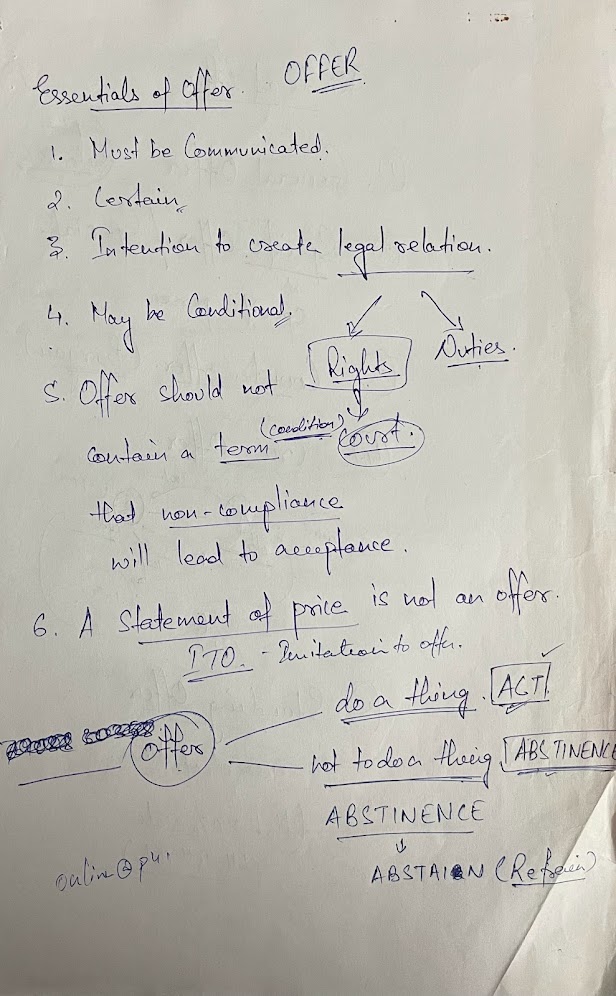 OFFER
Essentials of Offer.
1. Must be Communicated.
2. Certain.
3. Intention to create legal relation.
4. May be Conditional.
Rights
Duties.
5. Offer should not
(condition)
Court.
contain a term
that non-compliance
will lead to acceptance.
6. A Statement of price is not an offer.
ITO. - Invitation to offer.
do a thing. ACT
Offer
not to do a thing ABSTINENCE
ABSTINENCE
ABSTAIN (Refrain)
online@